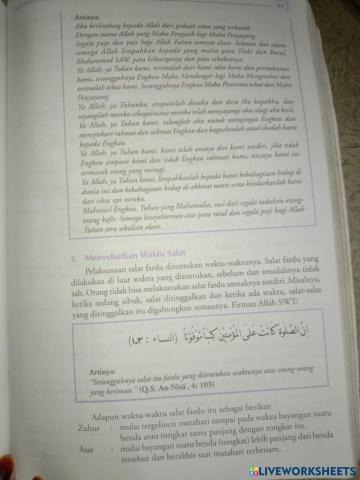 Artinya:
Aku berlindung kepada Allah dari godaan setan yang terkutuk.
Dengan nama Allah yang Maha Pengasih lagi Maha Penyayang.
Segala puja dan puji bagi Allah Tuhan semesta alam. Selawat dan salam
semoga Allah limpahkan kepada yang mulia para Nabi dan Rasul,
Muhammad SAW, para keluarganya dan para sahabatnya.
Ya Allah, ya Tuhan kami, terimalah dari kami salat kami dan permohonan
kami, sesungguhnya Engkau Maha Mendengar lagi Maha Mengetahui dan
terimalah tobat kami. Sesungguhnya Engkau Maha Penerima tobat dan Maha
Penyayang.
Ya Allah, ya Tuhanku, ampunilah dosaku dan dosa ibu bapakku, dan
sayangilah mereka sebagaimana mereka telah menyayangi aku selagi aku kecil.
Ya Allah, ya Tuhan kami, tolonglah aku untuk mengingat Engkau dan
mensyukuri rahmat dan nikmat Engkau dan baguskanlah amal ibadah kami
kepada Engkau.
Ya Allah, ya Tuhan kami, kami telah aniaya diri kami sendiri, jika tidak
Engkau ampuni kami dan tidak Engkau rahmati kami, niscaya kami ini
termasuk orang yang merugi.
Ya Allah, ya Tuhan kami, limpahkanlah kepada kami kebahagiaan hidup di
dunia ini dan kebahagiaan hidup di akhirat nanti serta hindarkanlah kami
dari siksa api neraka.
Mahasuci Engkau, Tuhan yang Mahamulia, suci dari segala tuduhan orang-
orang kafir. Semoga kesejahteraan atas para rasul dan segala puji bagi Allah
Tuhan seru sekalian alam.
3. Menyebutkan Waktu Salat
Pelaksanaan salat fardu ditentukan waktu-waktunya. Salat fardu yang
dilakukan di luar waktu yang ditentukan, sebelum dan sesudahnya tidak
sah. Orang tidak bisa melaksanakan salat fardu seenaknya sendiri. Misalnya,
ketika sedang sibuk, salat ditinggalkan dan ketika ada waktu, salat-salat
yang ditinggalkan itu digabungkan semuanya. Firman Allah SWT:
اِنَّ الصَّلٰوةَ كَانَتْ عَلَى الْمُؤْمِنِيْنَ كِتٰبًا مَّوْقُوْتًا (النساء : ١٠٣)
Artinya:
"Sesungguhnya salat itu fardu yang ditentukan waktunya atas orang-orang
yang beriman." (Q.S. An-Nisā', 4: 103)
Adapun waktu-waktu salat fardu itu sebagai berikut:
Zuhur : mulai tergelincir matahari sampai pada waktu bayangan suatu
benda atau tongkat sama panjang dengan tongkat itu.
Asar : mulai bayangan suatu benda (tongkat) lebih panjang dari benda
tersebut dan berakhir saat matahari terbenam.
LIVEWORKSHEETS